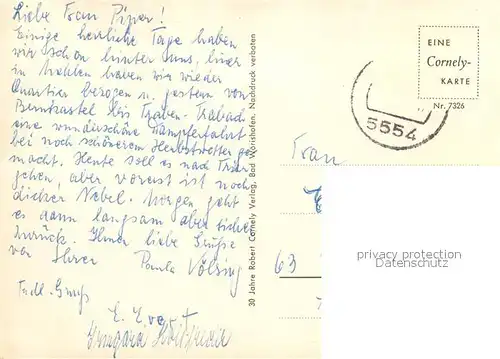 Liebe Frau Piper!
Einige herrliche Tage haben
wir schon hinter uns, hier
in haben wir wieder
Quartier bezogen u. gestern von
Bernkastel bis Traben-Trabach
eine wunderschöne Dampferfahrt
bei noch schönerem Herbstwetter ge-
macht. Heute soll es nach Trier
gehen, aber vorerst ist noch
dicker Nebel. Morgen geht
es dann langsam aber sicher
zurück. Ihnen liebe Grüße
von Ihrer Paula Völsing
Frdl. Gruß
30 Jahre Robert Cornely Verlag, Bad Wörishofen. Nachdruck verboten
EINE
Cornely-
KARTE
Nr. 7326
5554
Frau
63
privacy protection
Datenschutz